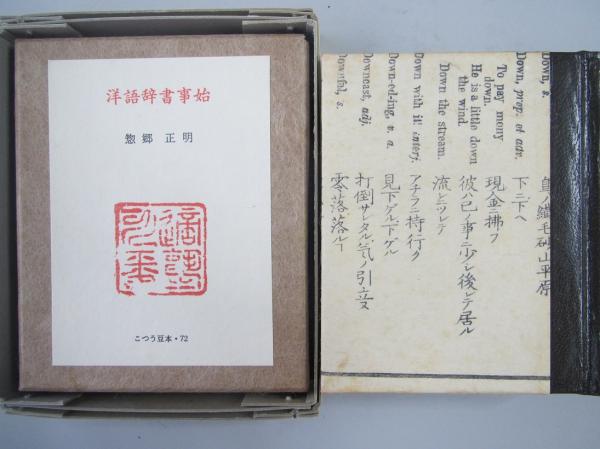 洋語辞書事始
惣郷 正明
こつう豆本・72
Down, s.
鳥ノ繊毛砂山平原
Down, prep. et adv.
下ニ下ヘ
To pay mony down.
現金ニ拂フ
He is a little down the wind.
彼ハ己ノ事ニ少シ後レテ居ル
Down the stream.
流レニツレテ
Down with it! interj.
アチラニ持行ク
Down-ed-ing, v. a.
見下ゲル下ゲル
Downcast, adj.
打倒サレタル気ノ引立ヌ
Downfal, s.
零落落ルー